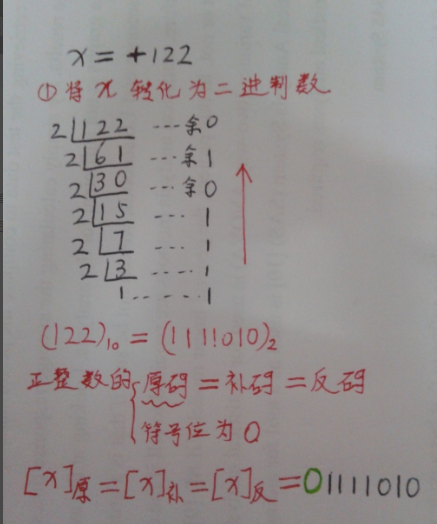 x = +122
① 将 x 转化为二进制数
2 122 ... 余 0
2 61 ... 余 1
2 30 ... 余 0
2 15 ... 1
2 7 ... 1
2 3 .... 1
1 ..... 1
(122)₁₀ = (1111010)₂
正整数的{原码 = 补码 = 反码
符号位为 0
[x]原 = [x]补 = [x]反 = 01111010